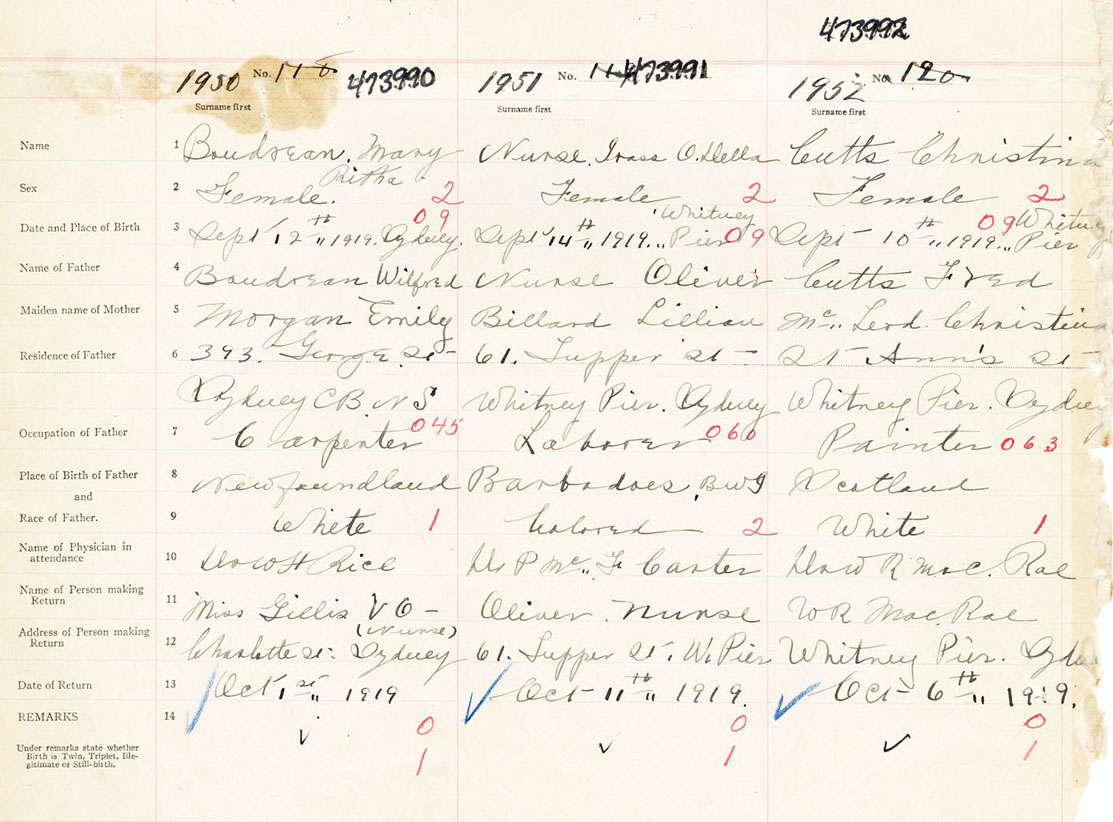 473992
1950 No. 118 473990 1951 No. 473991 1952 No. 120
Surname first Surname first Surname first
Name 1 Boudrean, Mary Ritha Nurse, O. Della Cutts Christina
Sex 2 Female. 2 Female 2 Female 2
Date and Place of Birth 3 Sept 12th " 1919. Sydney. 09 Sept 14th " 1919 " Whitney Pier 09 Sept 10th " 1919 " Whitney Pier 09
Name of Father 4 Boudrean Wilfred Nurse Oliver Cutts Fred
Maiden name of Mother 5 Morgan Emily Billard Lillian Mc Leod. Christina
Residence of Father 6 393. George St 61. Tupper St St Ann's St
Sydney C B. N S Whitney Pier. Sydney Whitney Pier. Sydney
Occupation of Father 7 Carpenter 045 Laborer 060 Painter 063
Place of Birth of Father 8 Newfoundland Barbadoes, BWI Scotland
and
Race of Father. 9 White 1 Colored 2 White 1
Name of Physician in
attendance 10 Rice Dr P Mc F Carter W R Mac. Rae
Name of Person making
Return 11 Miss Gillis V O - Oliver. Nurse WR Mac. Rae
(Nurse)
Address of Person making
Return 12 Charlotte St. Sydney 61. Tupper St. W. Pier Whitney Pier. Sydney
Date of Return 13 Oct 1st " 1919 Oct 11th " 1919. Oct 6th " 1919.
REMARKS 14 0 0 0
Under remarks state whether
Birth is Twin, Triplet, Ille-
gitimate or Still-birth. 1 1 1